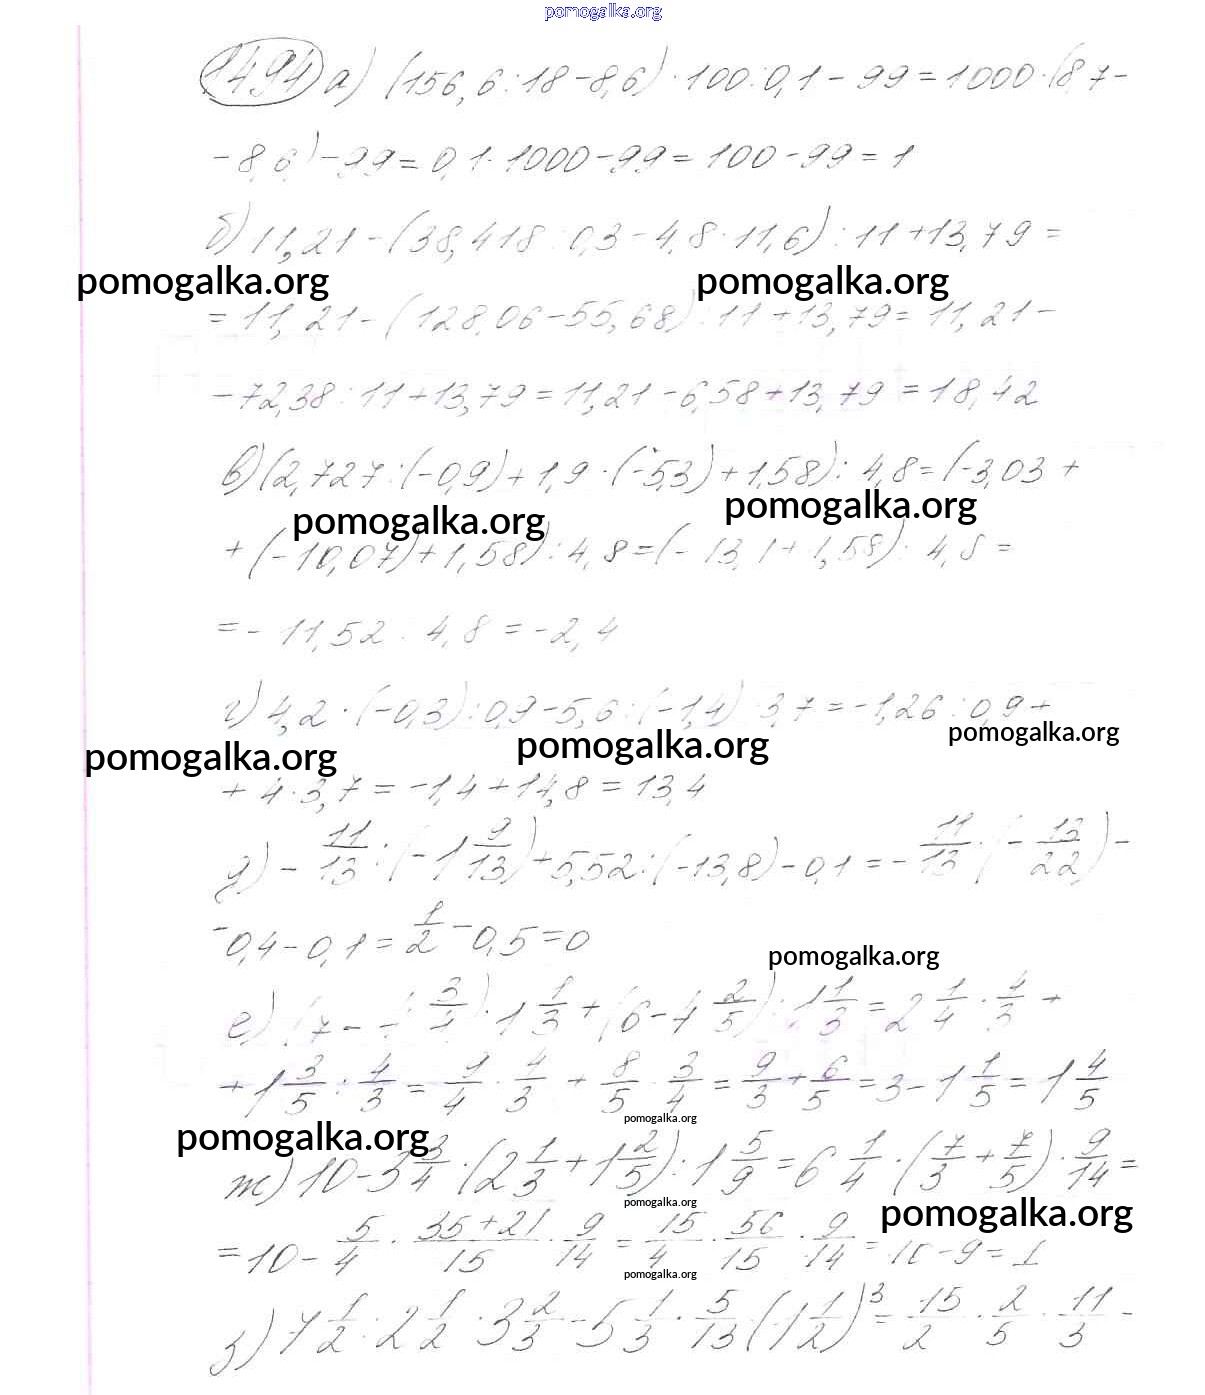 pomogalka.org
1494 а) (156,6:18-8,6)·100:0,1-99=1000·(8,7-
-8,6)-99=0,1·1000-99=100-99=1
б) 11,21-(38,418:0,3-4,8·11,6):11+13,79=
pomogalka.org pomogalka.org
=11,21-(128,06-55,68):11+13,79=11,21-
-72,38:11+13,79=11,21-6,58+13,79=18,42
в) (2,727:(-0,9)+1,9·(-5,3)+1,58):4,8=(-3,03+
pomogalka.org pomogalka.org
+(-10,07)+1,58):4,8=(-13,1+1,58):4,8=
=-11,52:4,8=-2,4
г) 4,2·(-0,3):0,9-5,6:(-1,4)·3,7=-1,26:0,9+
pomogalka.org pomogalka.org pomogalka.org
+4·3,7=-1,4+14,8=13,4
д) -11/13:(-1 9/13)+5,52:(-13,8)-0,1=-11/13·(-13/22)-
-0,4-0,1=1/2-0,5=0
pomogalka.org
е) ·1 1/3+(6-4 2/5):1 1/3=2 1/4·4/3+
+1 3/5:4/3=9/4·4/3+8/5·3/4=9/3+6/5=3-1 1/5=1 4/5
pomogalka.org
pomogalka.org
ж) 10-3 3/4·(2 1/3+1 2/5):1 5/9=6 1/4·(7/3+7/5)·9/14=
pomogalka.org
pomogalka.org
=10-5/4·35+21/15·9/14=15/4·56/15·9/14=10-9=1
pomogalka.org
з) 7 1/2:2 1/2·3 2/3-5 1/3·5/13(1 1/2)³=15/2·2/5·11/3-